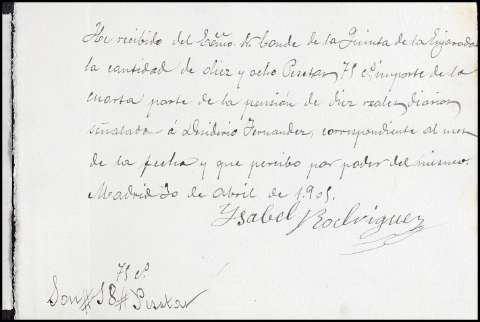 He recibido del Exmo. Sr Conde de la Quinta de la Enjarada
la cantidad de diez y ocho Pesetas, 75 cs. importe de la
cuarta parte de la pensión de diez reales diarios
señalada á Desiderio Fernandez, correspondiente al mes
de la fecha y que percibo por poder del mismo.
Madrid 30 de abril de 1.905.
Ysabel Rodriguez
75 cs.
Son # 18 # Pesetas